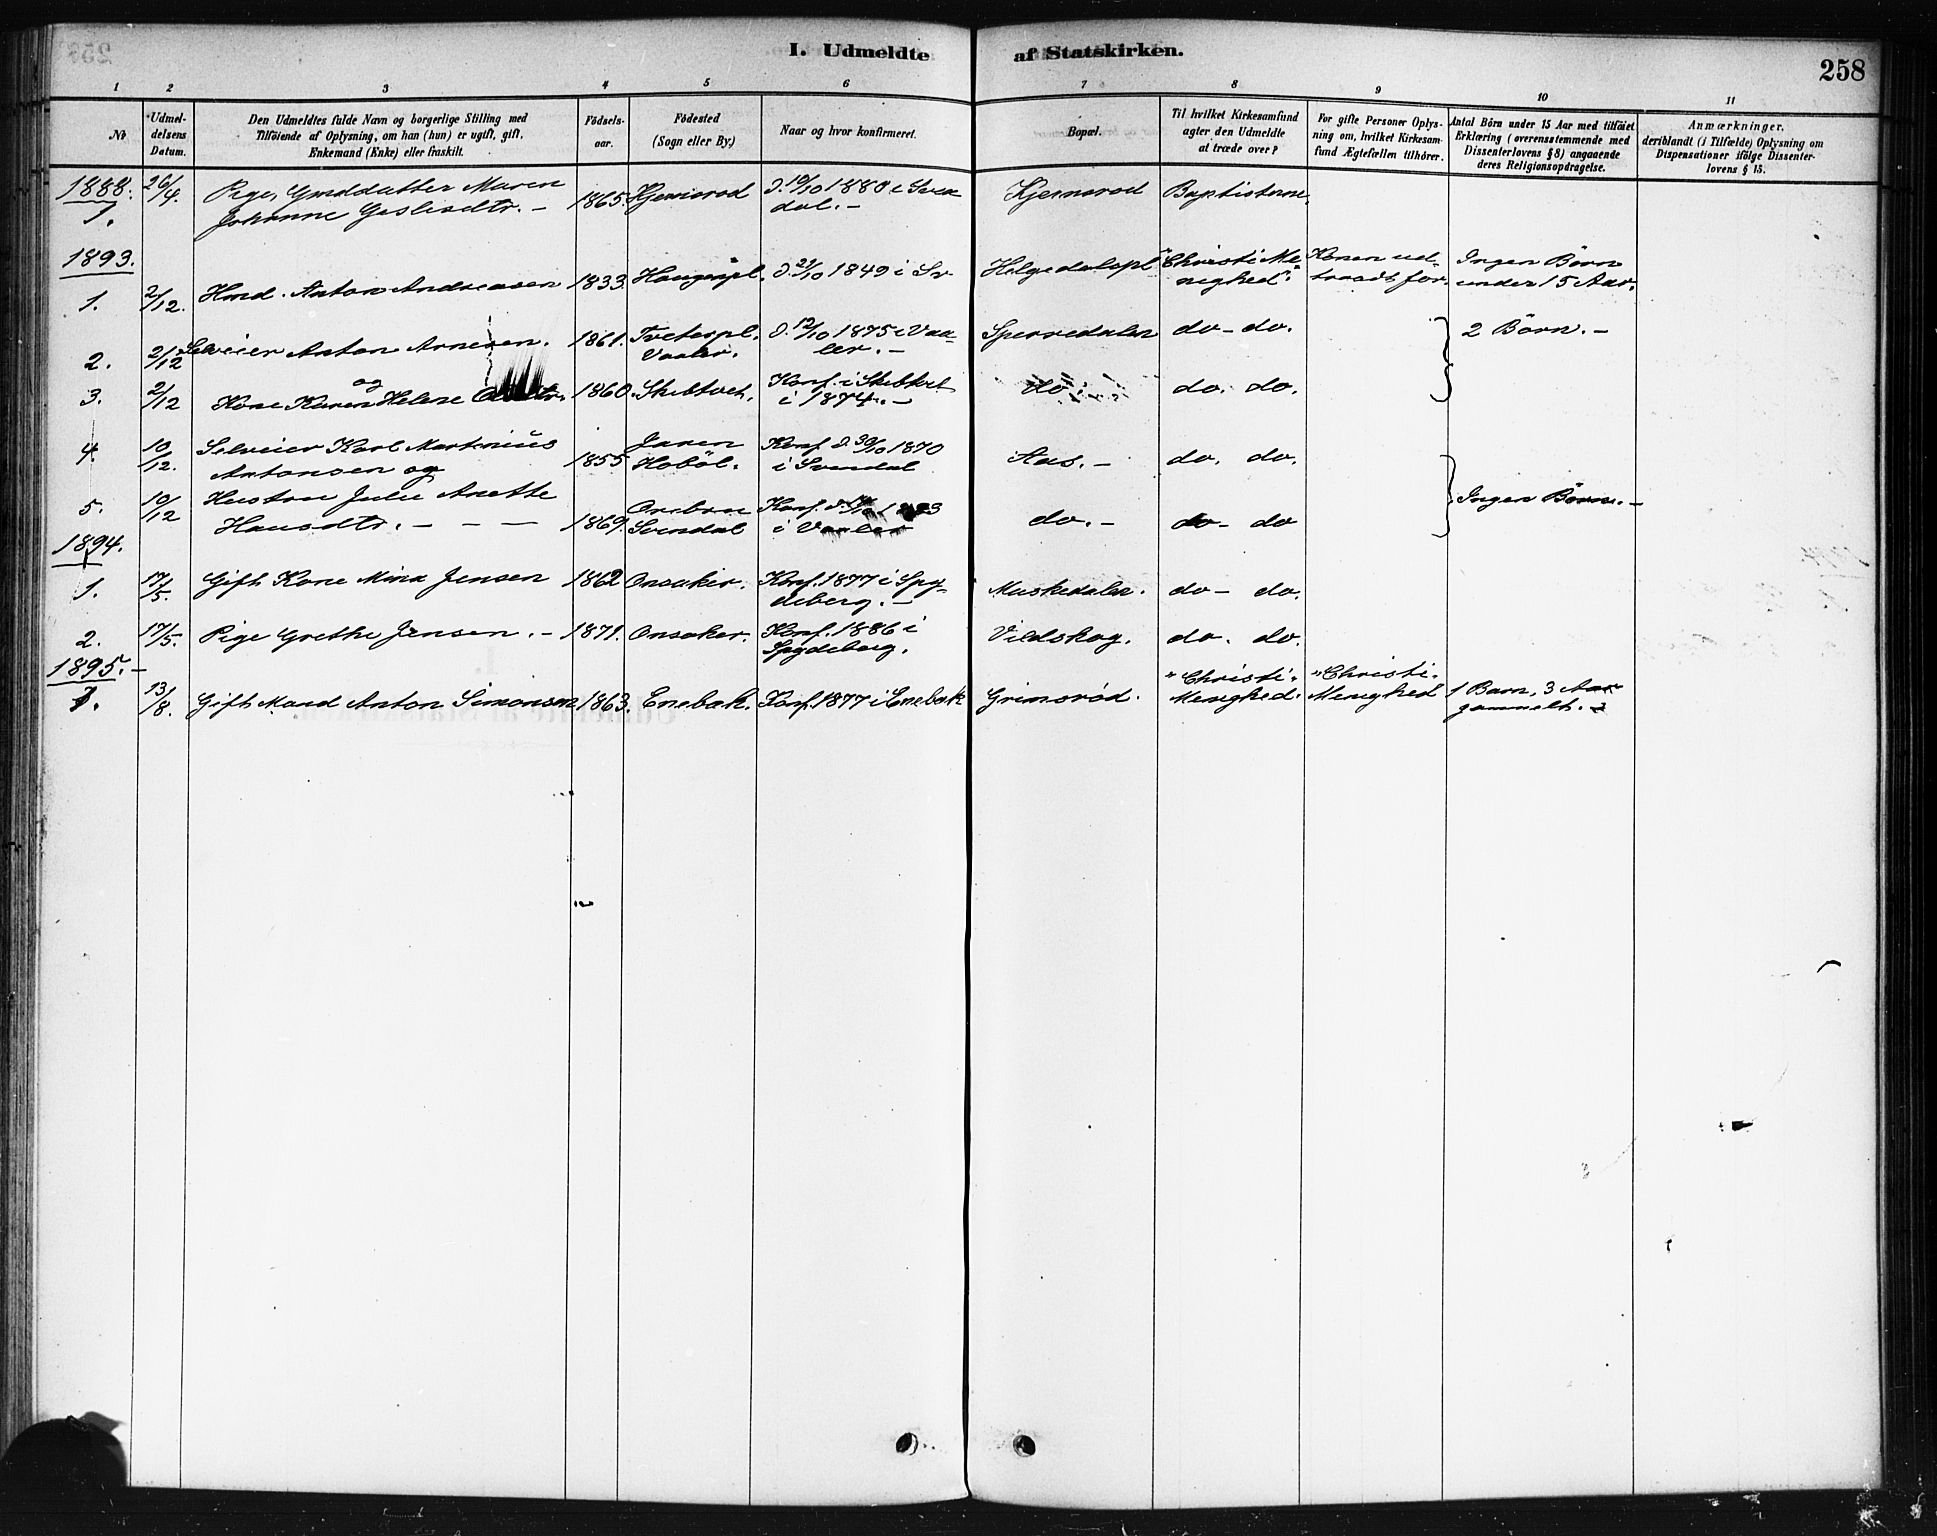 I. Udmeldte af Statskirken.
258
1 2 3 4 5 6 7 8 9 10 11
No
Udmeldelsens Datum.
Den Udmeldtes fulde Navn og borgerlige Stilling med
Tilföiende af Oplysning, om han (hun) er ugift, gift,
Enkemand (Enke) eller fraskilt.
Födselsaar.
Födested
(Sogn eller By.)
Naar og hvor konfirmeret.
Bopæl.
Til hvilket Kirkesamfund
agter den Udmeldte
at træde over?
For gifte Personer Oplys-
ning om, hvilket Kirkesam-
fund Ægtefællen tilhörer.
Antal Börn under 15 Aar med tilföiet
Erklæring (overensstemmende med
Dissenterlovens § 8) angaaende
deres Religionsopdragelse.
Anmærkninger,
deriblandt (i Tilfælde) Oplysning om
Dispensationer ifölge Dissenter-
lovens § 13.
1888. 26/4. Pige, Maren 1865. d. 10/10 1880 i Sven
1. Johanne dal. - Baptisterne.
1893.
1. 2/12. Anton Andreasen 1833. d. 21/10 1849 i Sv Helgedalspl "Christi Me- Konen ud-
nighed". traadt før. Ingen Børn
under 15 Aar.
2. 2/12 Selveier Anton Arnesen. 1861. Tveterpl. d. 12/10 1875 i Vaa- Sperredalen do - do. 2 Börn. -
Vaaler. ler. -
og
3. 2/12 Kone Karen Helene 1860. Skibtvet. Konf. i Skibtvet do. do. do.
i 1874. -
4. 10/12. Selveier Karl Martinius 1855 Jaren Konf. d. 30/10 1870 Aas. - do. do.
Antonsen og Hobøl. i Svendal
5. 10/12 Hustru Julie Anette Konf. d. Ingen Børn. -
Hansdtr. - - - 1869. Svendal i Vaaler do. - do - do
1894.
1. 17/5. Gift Kone Mina Jensen 1862 Onsaker. Konf. 1877 i Spy- Muskedalen. do - do.
deberg. -
2. 17/5. Pige Grethe Jensen. - 1871. Onsaker. Konf. 1886 i Vildskog. do. do.
Spydeberg.
1895. -
1. 13/8. Gift Mand Anton Simonsen 1863. Enebak. Konf. 1877 i Enebak Grimsrød. "Christi. "Christi.
Menghed. Menghed 1 Barn, 3 Aar
gammelt. -